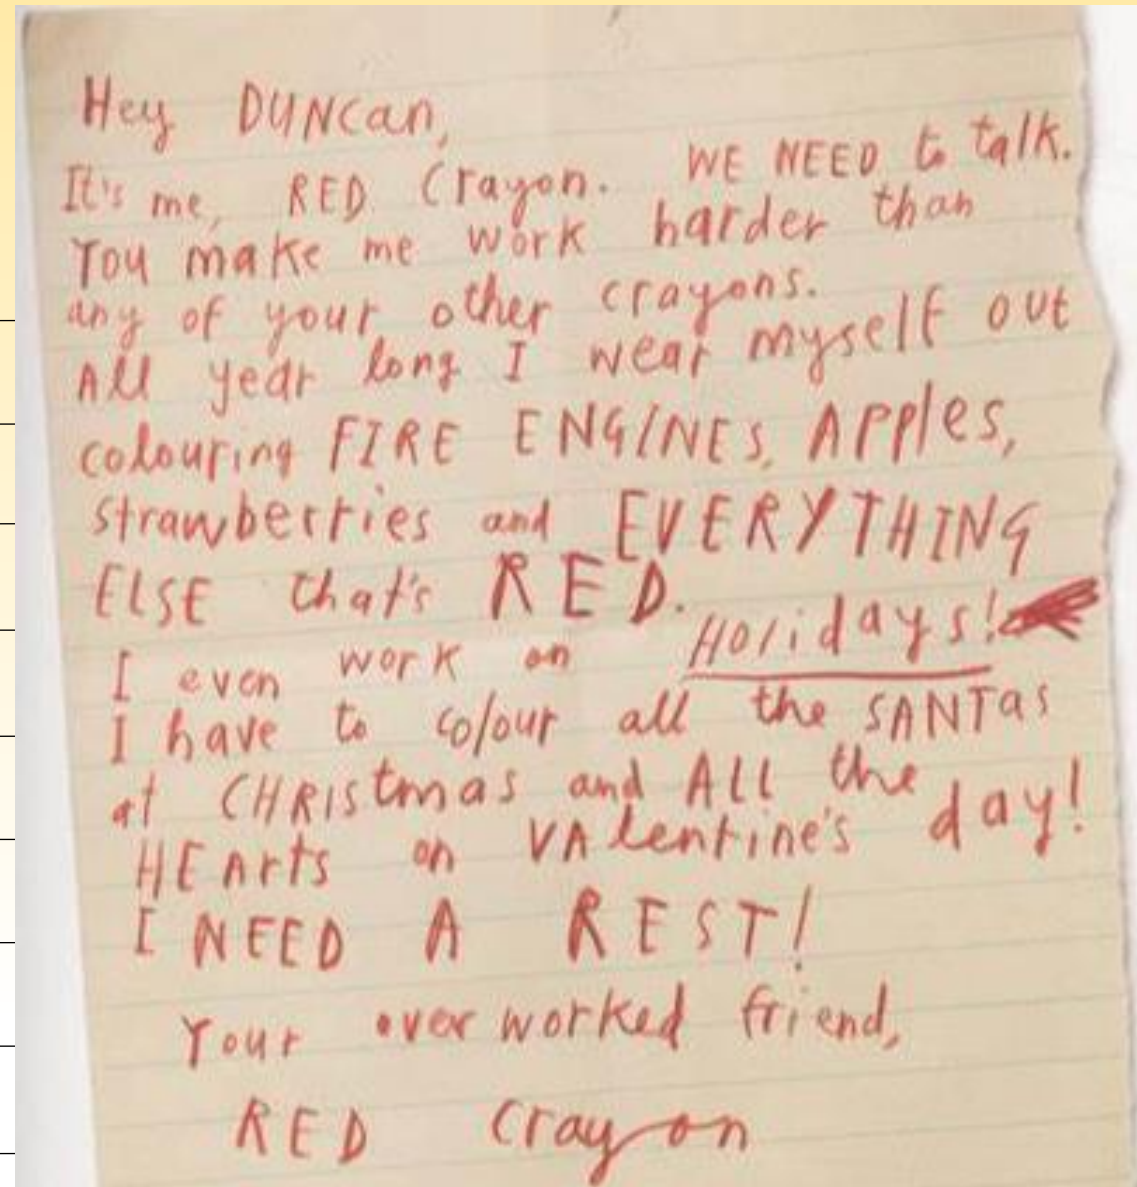 Hey DUNCan,
It's me, RED Crayon. WE NEED to talk.
You make me work harder than
any of your other crayons.
All year long I wear myself out
colouring FIRE ENGINES, APPles,
strawberries and EVERYTHING
ELSE that's RED.
I even work on Holidays!
I have to colour all the SANTas
at CHRIStmas and ALL the
HEArts on VAlentine's day!
I NEED A REST!
Your overworked friend,
RED Crayon